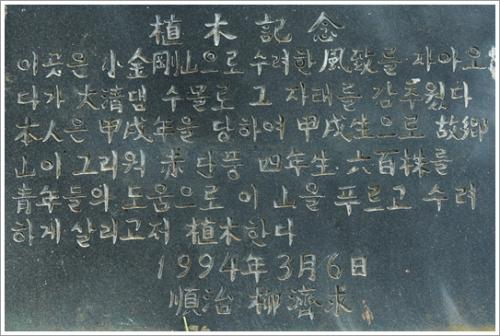 植木記念
이곳은 小金剛山으로 수려한 風致를 자아오
다가 大淸댐 수몰로 그 자태를 감추웠다
本人은 甲戌年을 당하여 甲戌生으로 故鄕
山이 그리워 赤단풍 四年生 六百株를
靑年들의 도움으로 이 山을 푸르고 수려
하게 살리고저 植木한다
1994年 3月 6日
順治 柳濟求